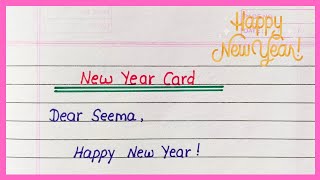 Happy
New Year!
New Year Card
Dear Seema,
Happy New Year!